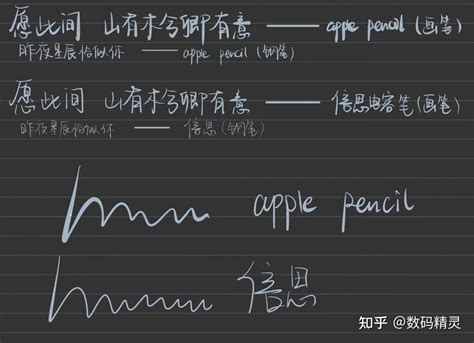 愿此间 山有木兮卿有意 —— apple pencil (画笔)
昨夜星辰恰似你 —— apple pencil (钢笔)
愿此间 山有木兮卿有意 —— 倍思电容笔(画笔)
昨夜星辰恰似你 —— 倍思 (钢笔)
apple pencil
倍思
知乎 @数码精灵